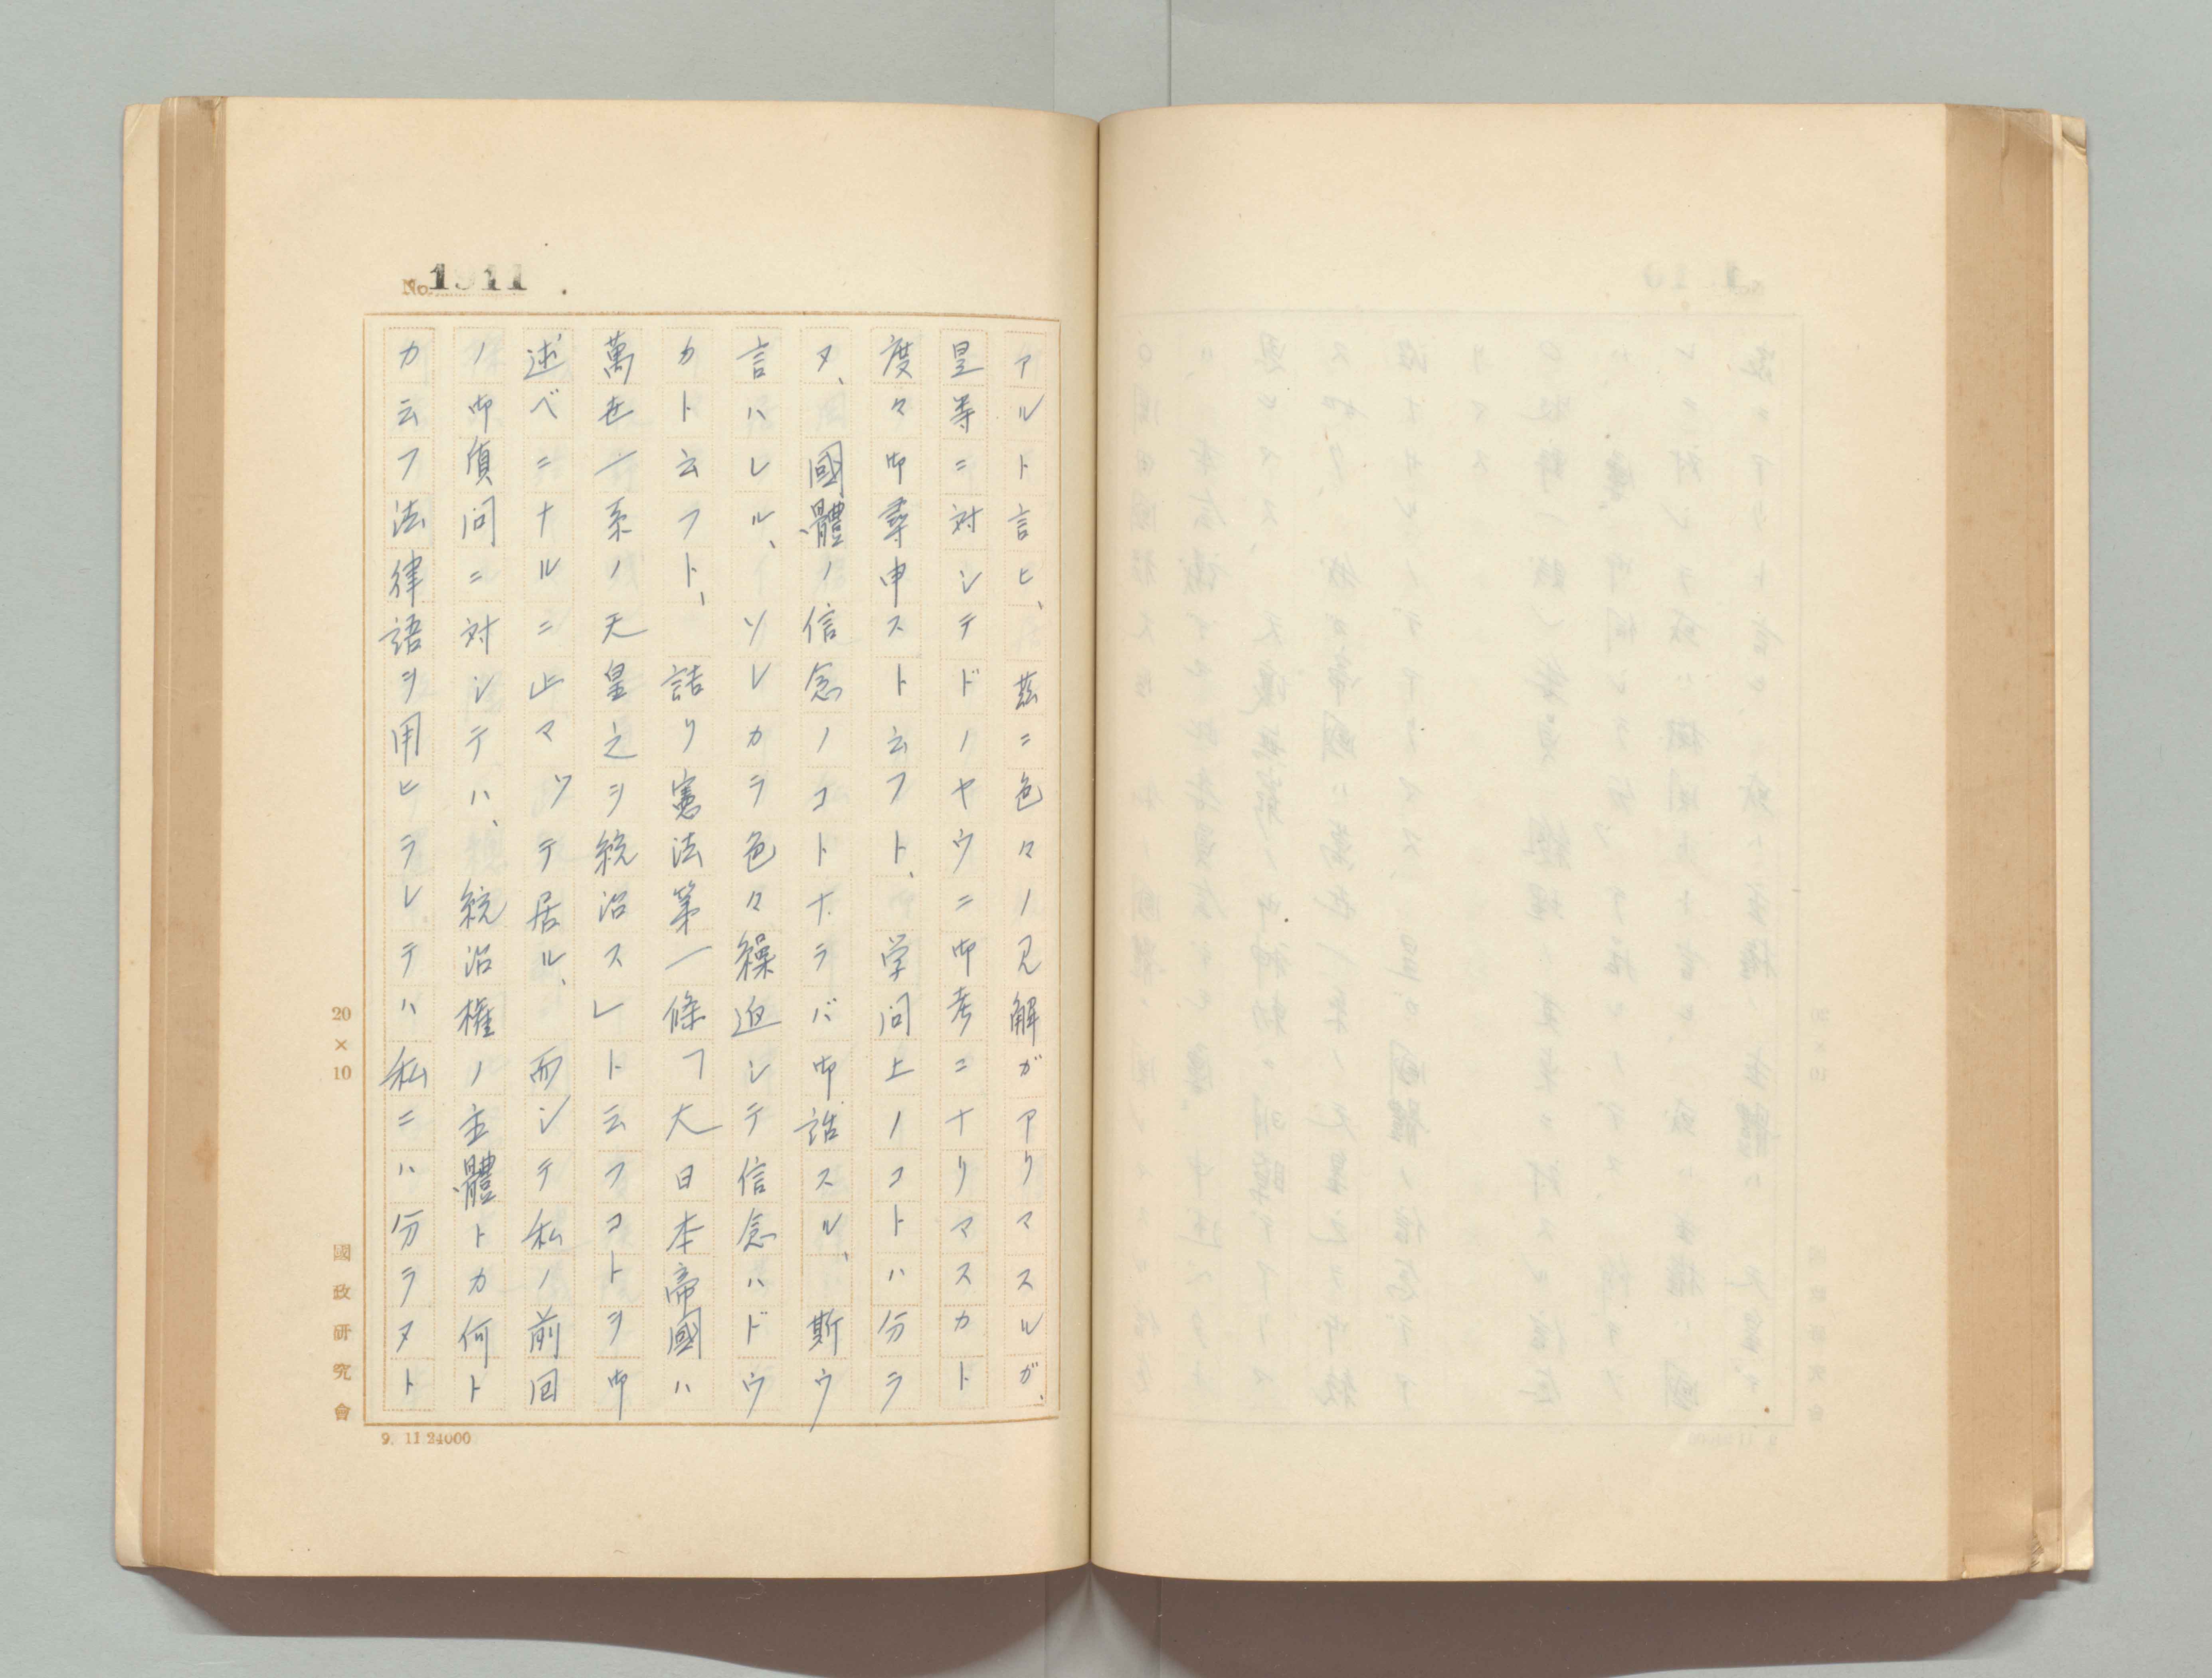 No. 1911
アルト言ヒ、茲ニ色々ノ見解ガアリマスルガ、
是等ニ対シテドノヤウニ御考ニナリマスカト
度々御尋申スト云フト、学問上ノコトハ分ラ
ヌ、國體ノ信念ノコトナラバ御話スル、斯ウ
言ハレル、ソレカラ色々繰迫シテ信念ハドウ
カト云フト、詰リ憲法第一條「大日本帝國ハ
萬世一系ノ天皇之ヲ統治ス」ト云フコトヲ御
述ベニナルニ止マツテ居ル、而シテ私ノ前回
ノ御質問ニ対シテハ、統治権ノ主體トカ何ト
カ云フ法律語ヲ用ヒラレテハ私ニハ分ラヌト
20×10 國政研究會
9. 11.24000